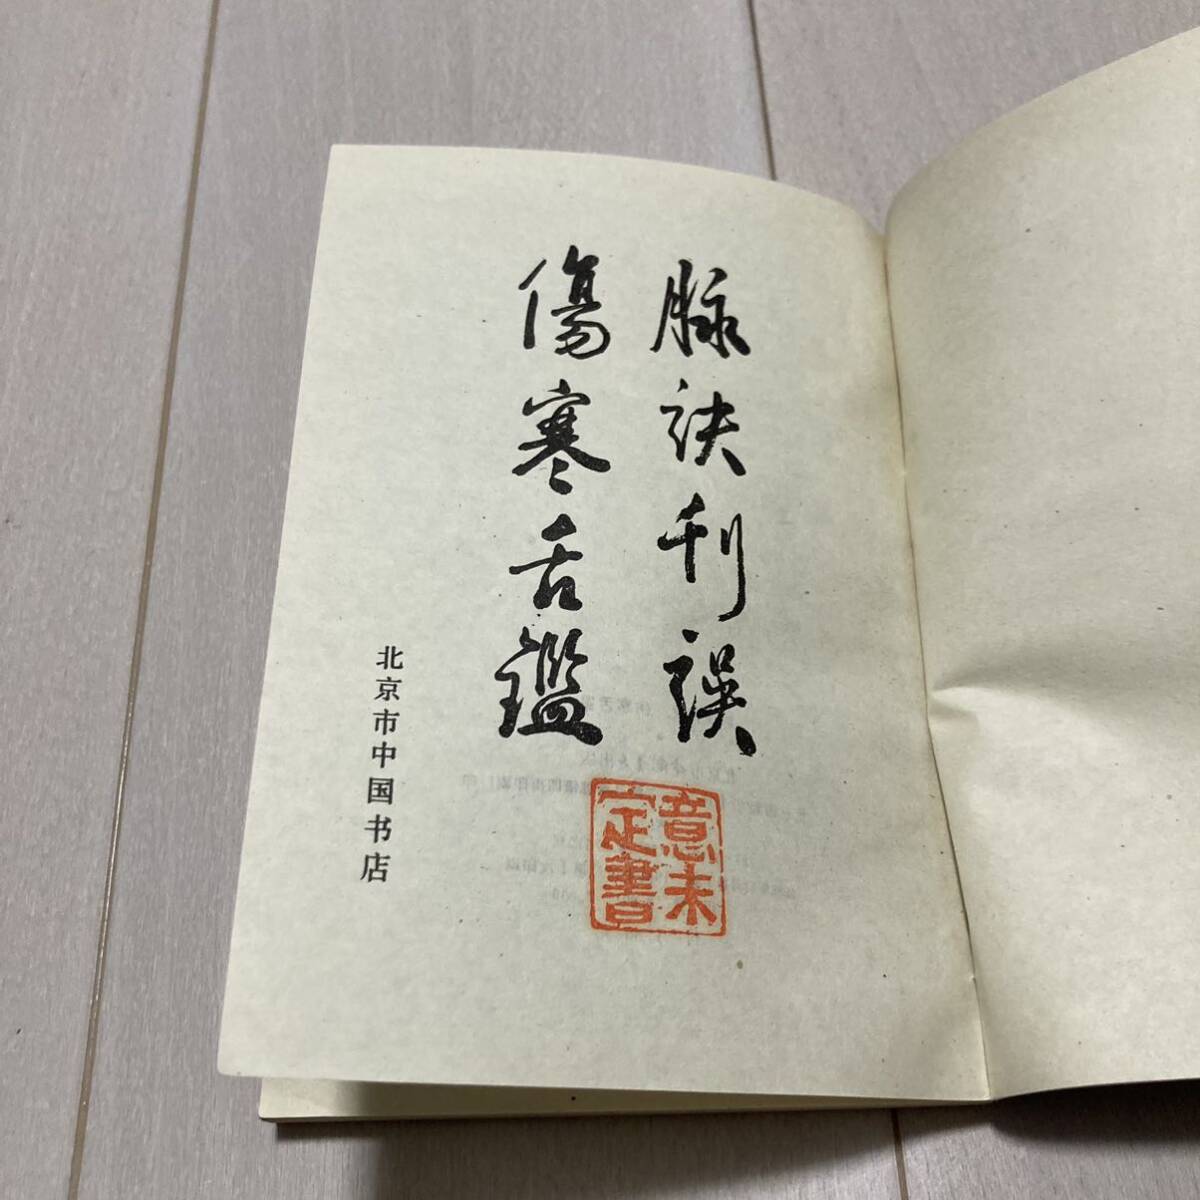 脉诀刊誤
傷寒舌鑑
北京市中国书店
意未
定書